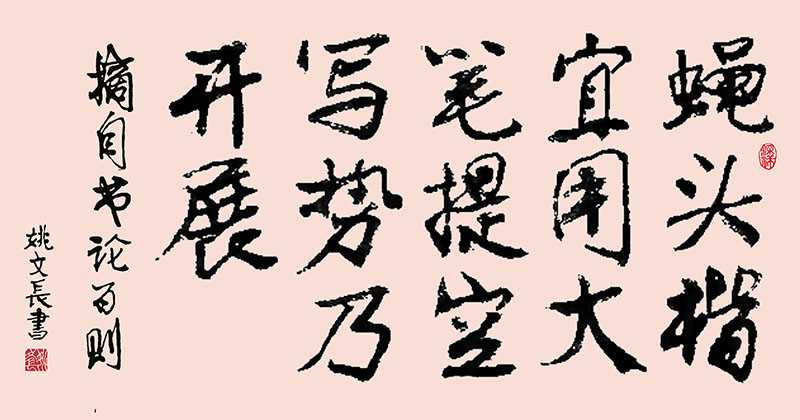 蝇头楷
宜用大
笔提空
写势乃
开展
摘自书论百则
姚文长書